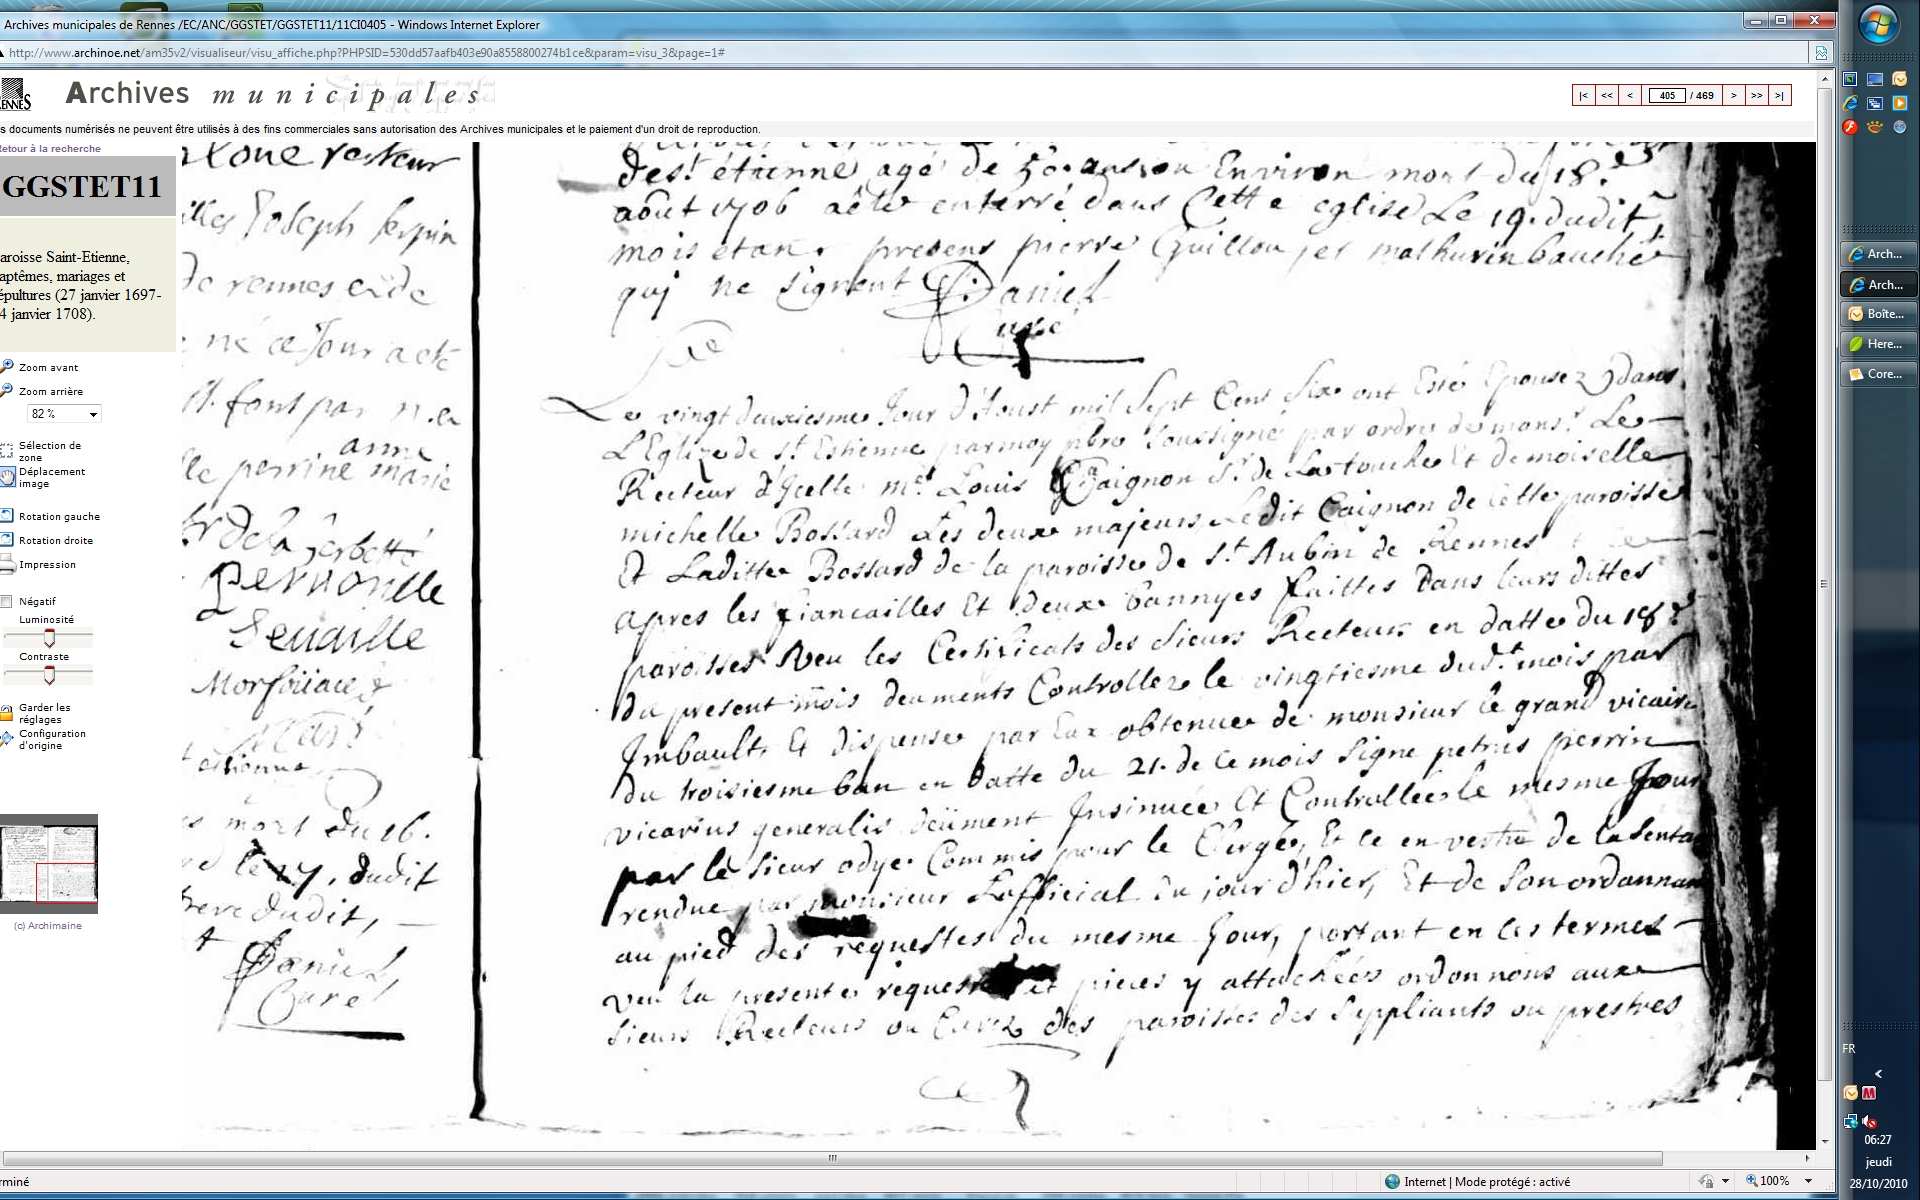 Archives municipales de Rennes /EC/ANC/GGSTET/GGSTET11/11CI0405 - Windows Internet Explorer
http://www.archinoe.net/am35v2/visualiseur/visu_affiche.php?PHPSID=530dd57aafb403e90a8558800274b1ce&param=visu_3&page=1#
Archives municipales
405 / 469
s documents numérisés ne peuvent être utilisés à des fins commerciales sans autorisation des Archives municipales et le paiement d'un droit de reproduction.
Retour à la recherche
GGSTET11
aroisse Saint-Etienne,
aptêmes, mariages et
épultures (27 janvier 1697-
4 janvier 1708).
Zoom avant
Zoom arrière
82 %
Sélection de
zone
Déplacement
image
Rotation gauche
Rotation droite
Impression
Négatif
Luminosité
Contraste
Garder les
réglages
Configuration
d'origine
(c) Archimaine
recteur
Joseph
de rennes
né ce Jour
font par
anne
perrine marie
Morfouace
mort du 16.
dudit
dudit,
Daniel
Curé
de st étienne agé de 50 ans ou Environ mort du 18.e
août 1706 a été enterré dans Cette eglise Le 19. dudit
mois etant presens pierre Guillou et mathurin bauché
qui ne signent Daniel
Curé
Le vingt deuxiesme Jour d'Aoust mil Sept Cens Six ont Esté Epousez dans
L'Eglize de st Estienne par moy pbre Soussigné par ordre de monsr Le
Recteur d'Icelle mr Louis Gaignon Sr de La touche Et demoiselle
michelle Bossard Les deux majeurs Ledit Gaignon de Cette paroisse
Et Laditte Bossard de la paroisse de St Aubin de Rennes
apres les fiancailles Et deux bannyes faittes dans leurs dittes
paroisses Veu les Certificats des Sieurs Recteurs en datte du 18e
du present mois deuments Controllez le vingtiesme dudt mois par
Imbault, Et dispense par Eux obtenue de monsieur le grand vicaire
du troisiesme ban en datte du 21. de Ce mois Signe petrus perrin
vicarius generalis deüment Insinuée Et Controllée le mesme Jour
par le Sieur odye Commis pour le Clergé, Et ce en vertu de la Senta
rendue par monsieur L'official du jour d'hier, Et de Son ordannan
au pied des requestes du mesme Jour, portant en ces termes
veu la presente requeste et pieces y attachées ordonnons aux
Sieurs Recteurs ou Curez des paroisses des Suppliants ou prestres
Arch...
Arch...
Boîte...
Here...
Core...
FR
06:27
jeudi
28/10/2010
rminé
Internet | Mode protégé : activé
100%